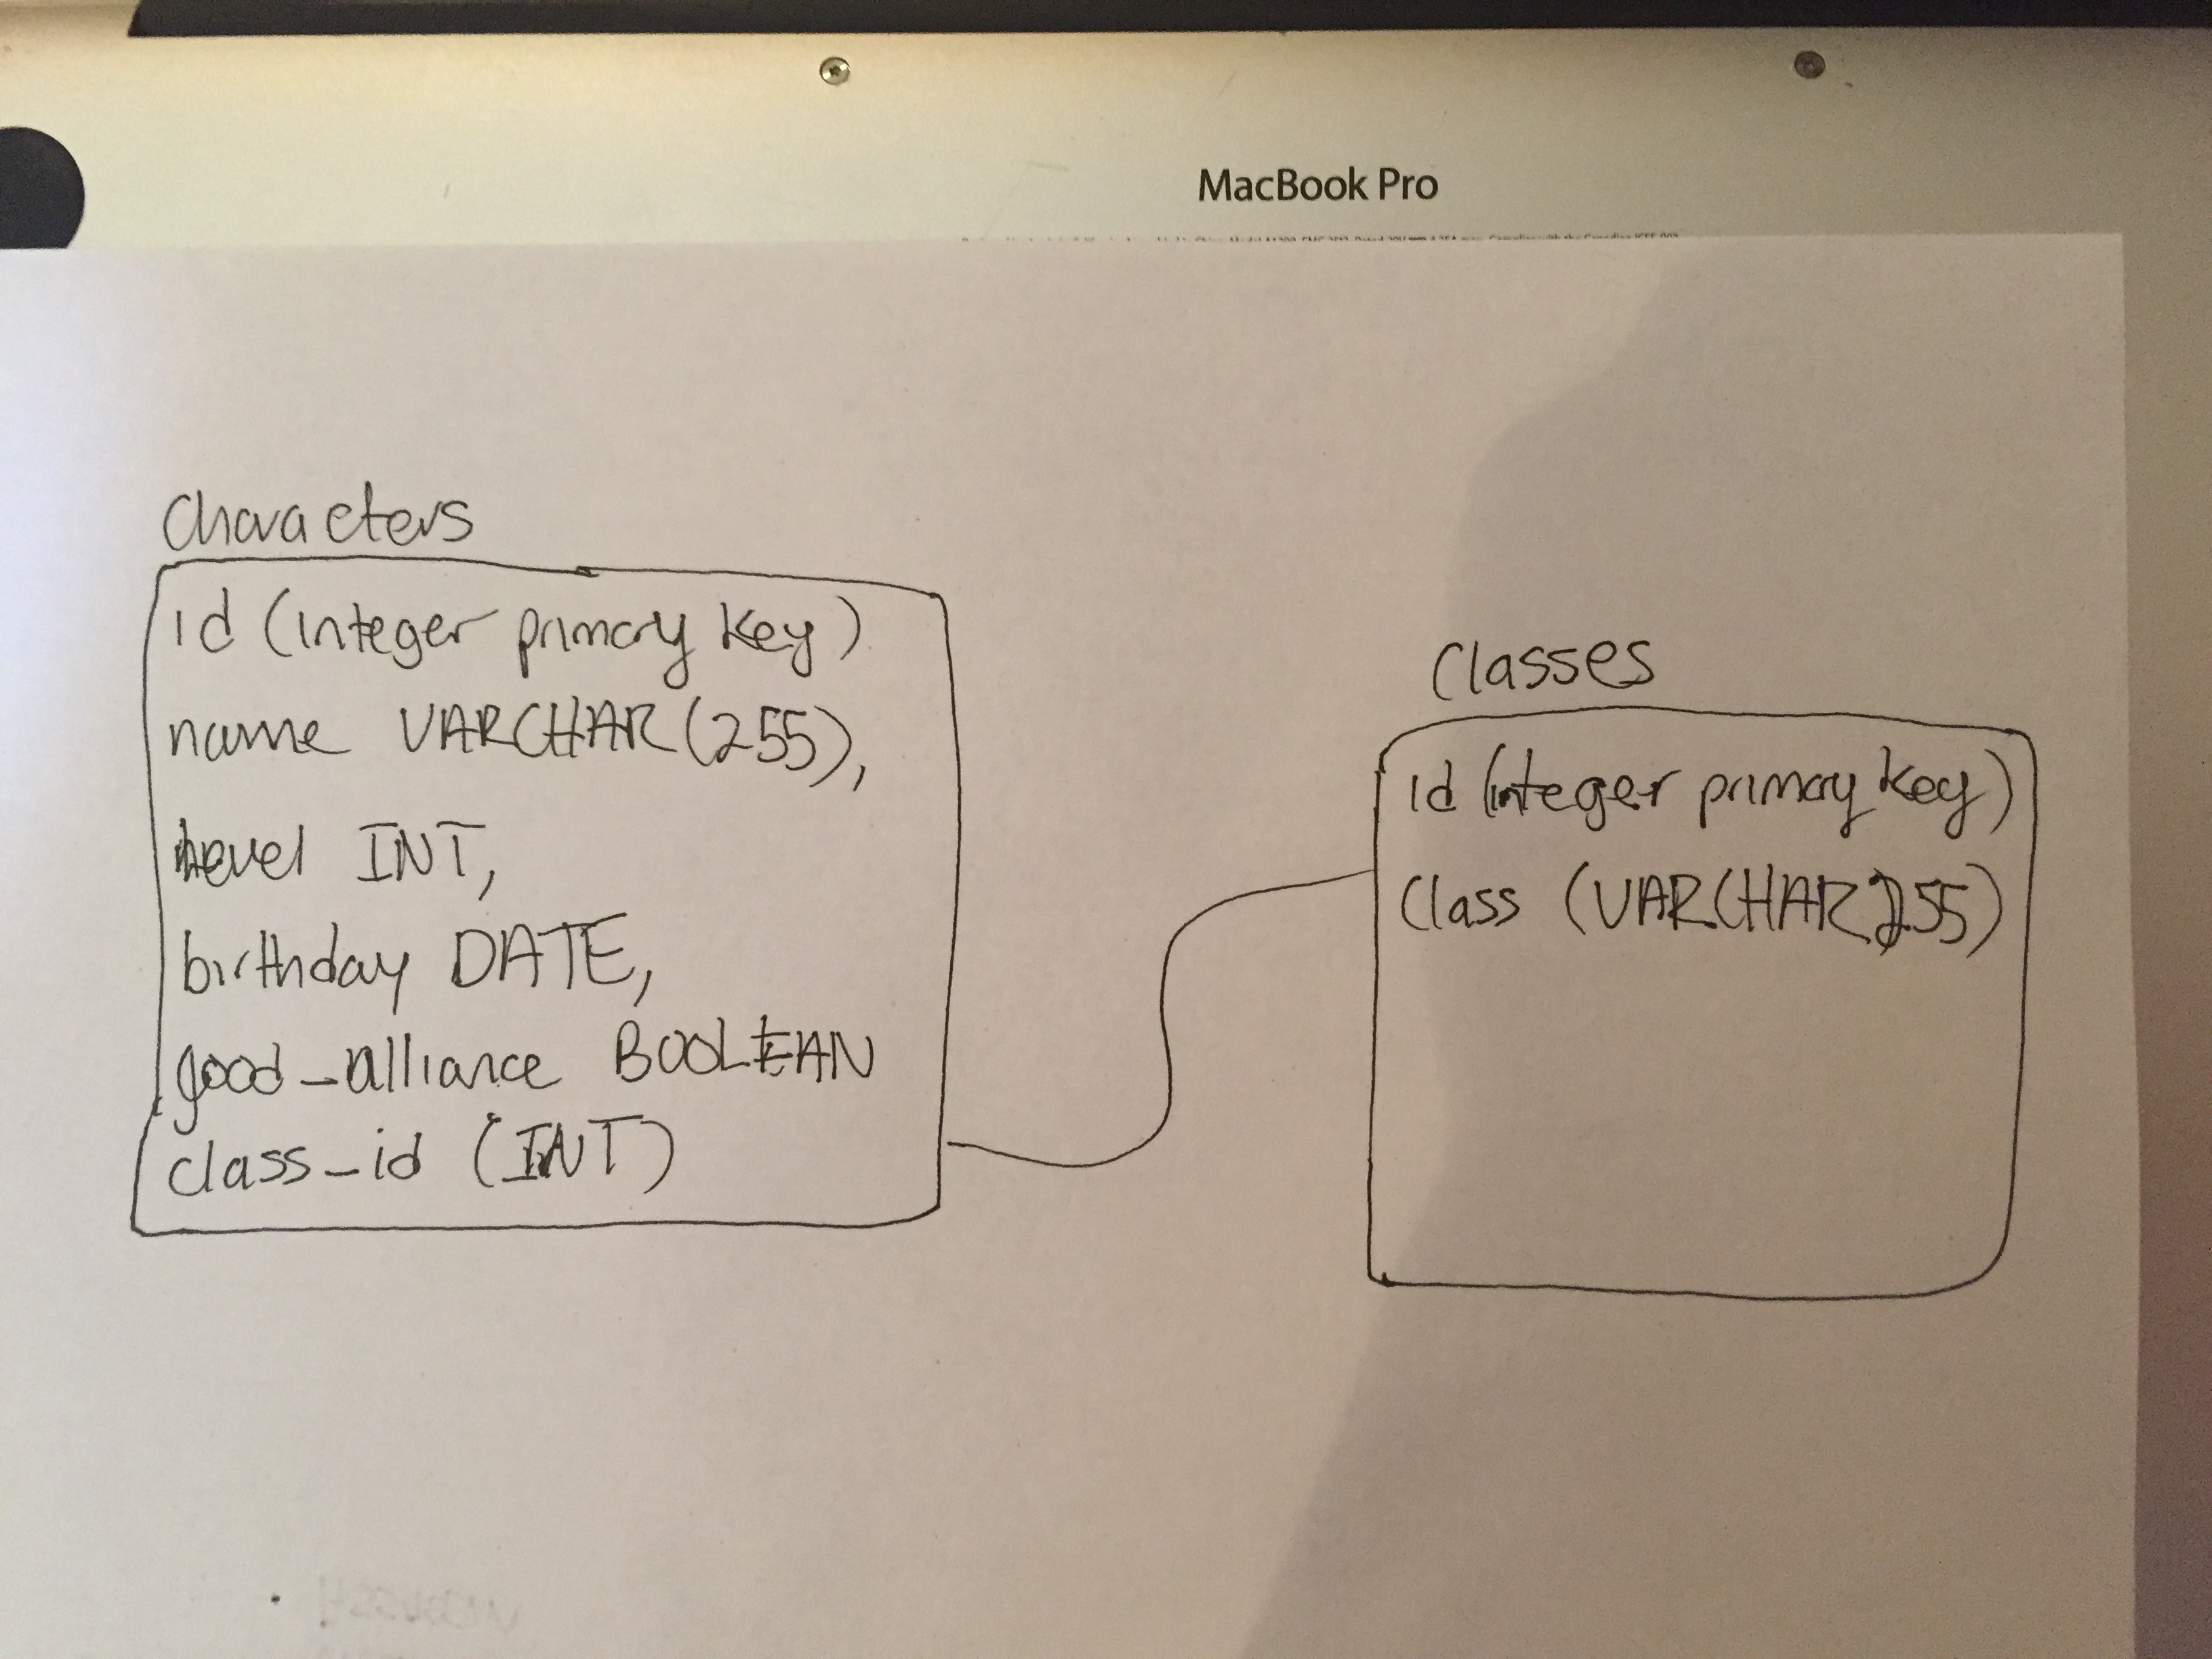 MacBook Pro
Characters
id (integer primary key)
name VARCHAR(255),
level INT,
birthday DATE,
good_alliance BOOLEAN
class_id (INT)
Classes
id (integer primary key)
Class (VARCHAR255)